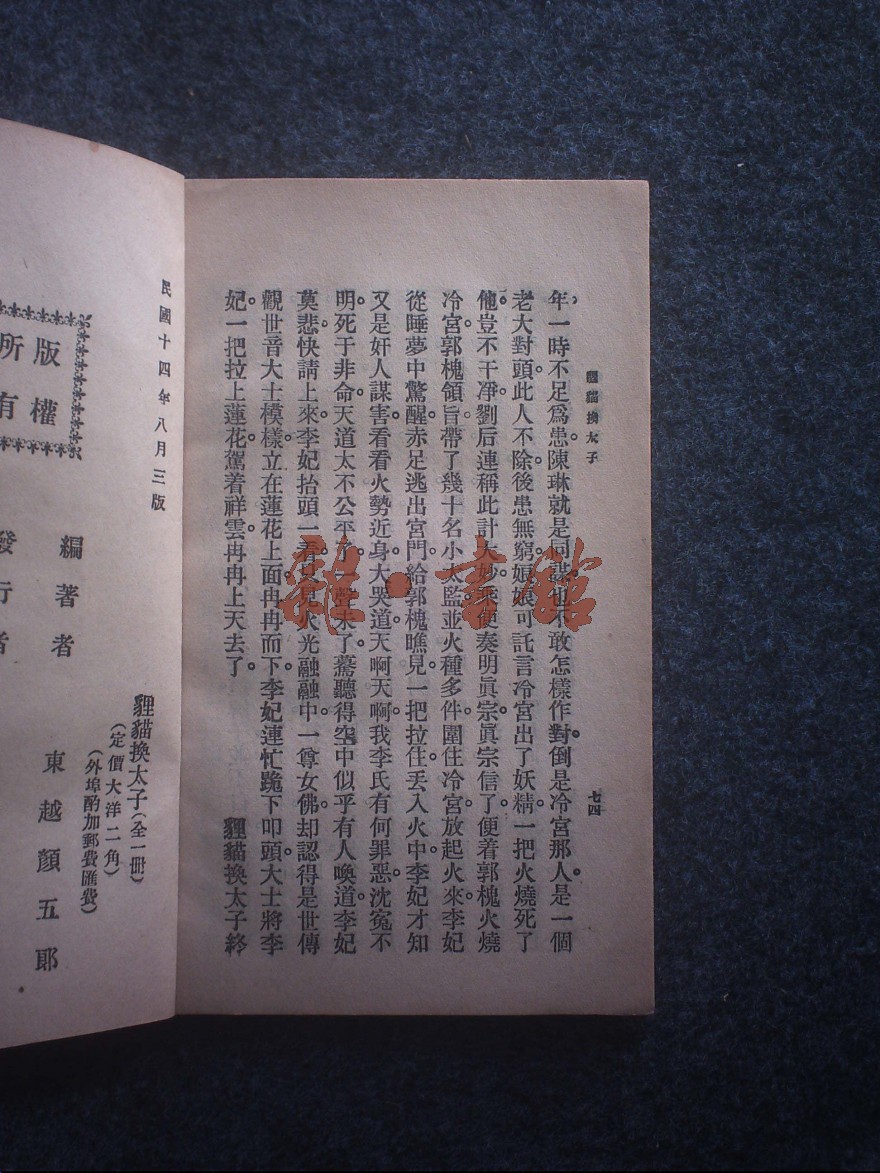 貍貓換太子
七四
年一時不足爲患陳琳就是同謀也不敢怎樣作對倒是冷宮那人是一個
老大對頭此人不除後患無窮娘娘可託言冷宮出了妖精一把火燒死了
他豈不干凈劉后連稱此計大妙乘便奏明眞宗眞宗信了便着郭槐火燒
冷宮郭槐領旨帶了幾十名小太監並火種多件圍住冷宮放起火來李妃
從睡夢中驚醒赤足逃出宮門給郭槐瞧見一把拉住丟入火中李妃才知
又是奸人謀害看看火勢近身大哭道天啊天啊我李氏有何罪惡沈寃不
明死于非命天道太不公平了一聲未了驀聽得空中似乎有人喚道李妃
莫悲快請上來李妃抬頭一看只見火光融融中一尊女佛却認得是世傳
觀世音大士模樣立在蓮花上面冉冉而下李妃連忙跪下叩頭大士將李
妃一把拉上蓮花駕着祥雲冉冉上天去了
貍貓換太子終
民國十四年八月三版
貍貓換太子(全一冊)
(定價大洋二角)
(外埠酌加郵費匯費)
版權
所有
編著者 東越顏五郎
發行者
雜·書館